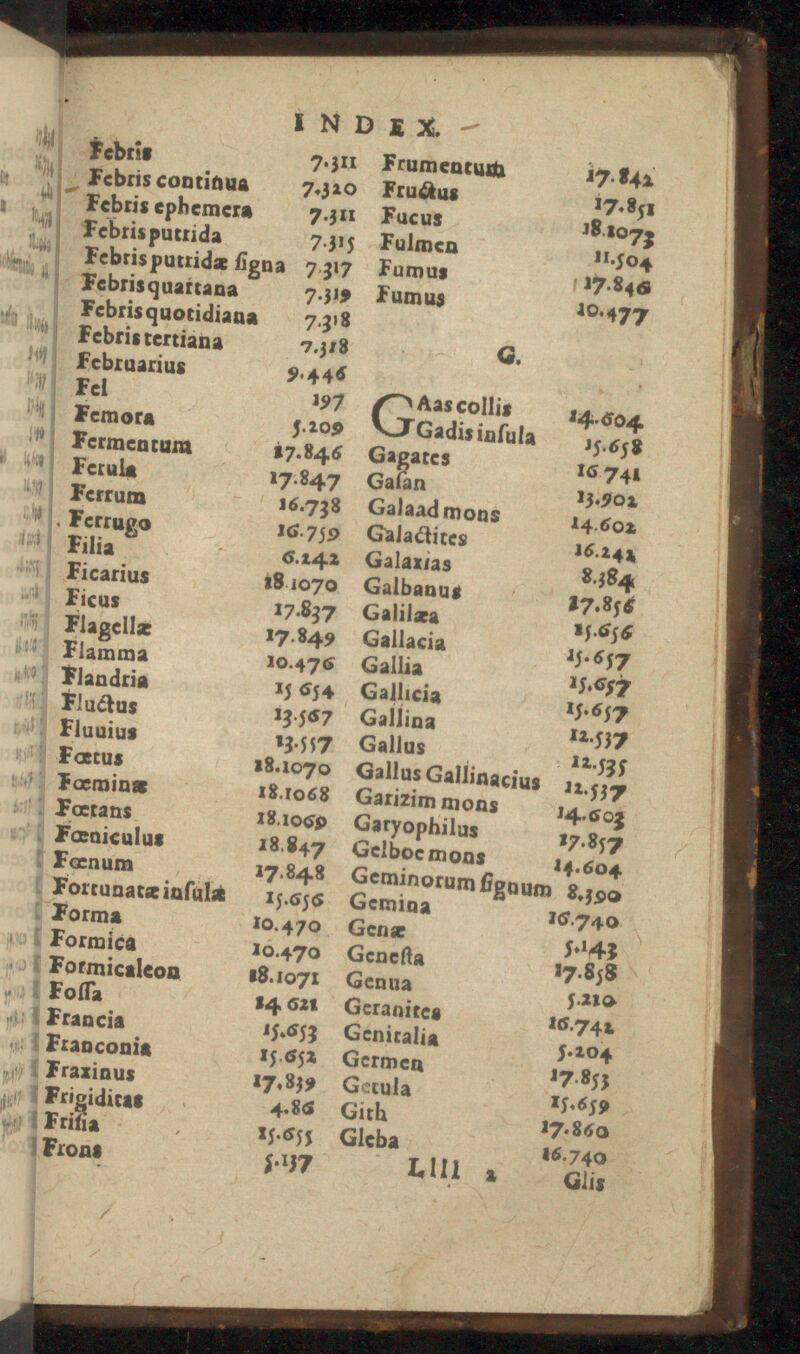 INDEX.
Febris 7.311
Febris continua 7.320
Febris ephemera 7.311
Febris putrida 7.315
Febris putridæ ſigna 7.317
Febris quartana 7.319
Febris quotidiana 7.318
Febris tertiana 7.318
Februarius 9.446
Fel 197
Femora 5.209
Fermentum 17.846
Ferula 17.847
Ferrum 16.738
Ferrugo 16.759
Filia 6.242
Ficarius 18.1070
Ficus 17.837
Flagellæ 17.849
Flamma 10.476
Flandria 15 654
Fluctus 13.567
Fluuius 13.557
Fœtus 18.1070
Fœminæ 18.1068
Fœtans 18.1069
Fœniculus 18.847
Fœnum 17.848
Fortunatæ inſulæ 15.656
Forma 10.470
Formica 10.470
Formicaleon 18.1071
Foſſa 14 621
Francia 15.653
Franconia 15.652
Fraxinus 17.839
Frigiditas 4.86
Friſia 15.655
Frons 5.137
Frumentum 17.842
Fructus 17.851
Fucus 18.1073
Fulmen 11.504
Fumus 17.846
Fumus 10.477
G.
GAas collis 14.604
Gadis inſula 15.658
Gagates 16 741
Gaſan 13.902
Galaad mons 14.602
Galactites 16.242
Galaxias 8.384
Galbanus 17.856
Galilæa 15.656
Gallacia 15.657
Gallia 15.657
Gallicia 15.657
Gallina 12.537
Gallus 12.535
Gallus Gallinacius 12.537
Garizim mons 14.603
Garyophilus 17.857
Gelboe mons 14.604
Geminorum ſignum 8.390
Gemina 16.740
Genæ 5.143
Geneſta 17.858
Genua 5.210
Geranites 16.742
Genitalia 5.204
Germen 17.853
Getula 15.659
Gith 17.860
Gleba 16.740
Llll 2
Glis